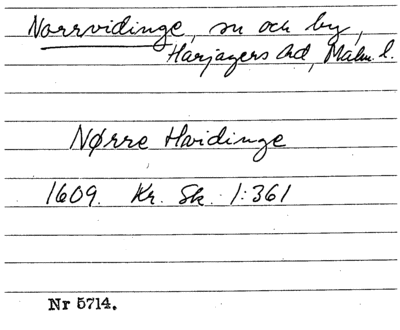 Norrvidinge, sn och by,
Harjagers hd, Malm. l.
Nørre Hvidinge
1609. Kr. Sk. 1:361
Nr 5714.